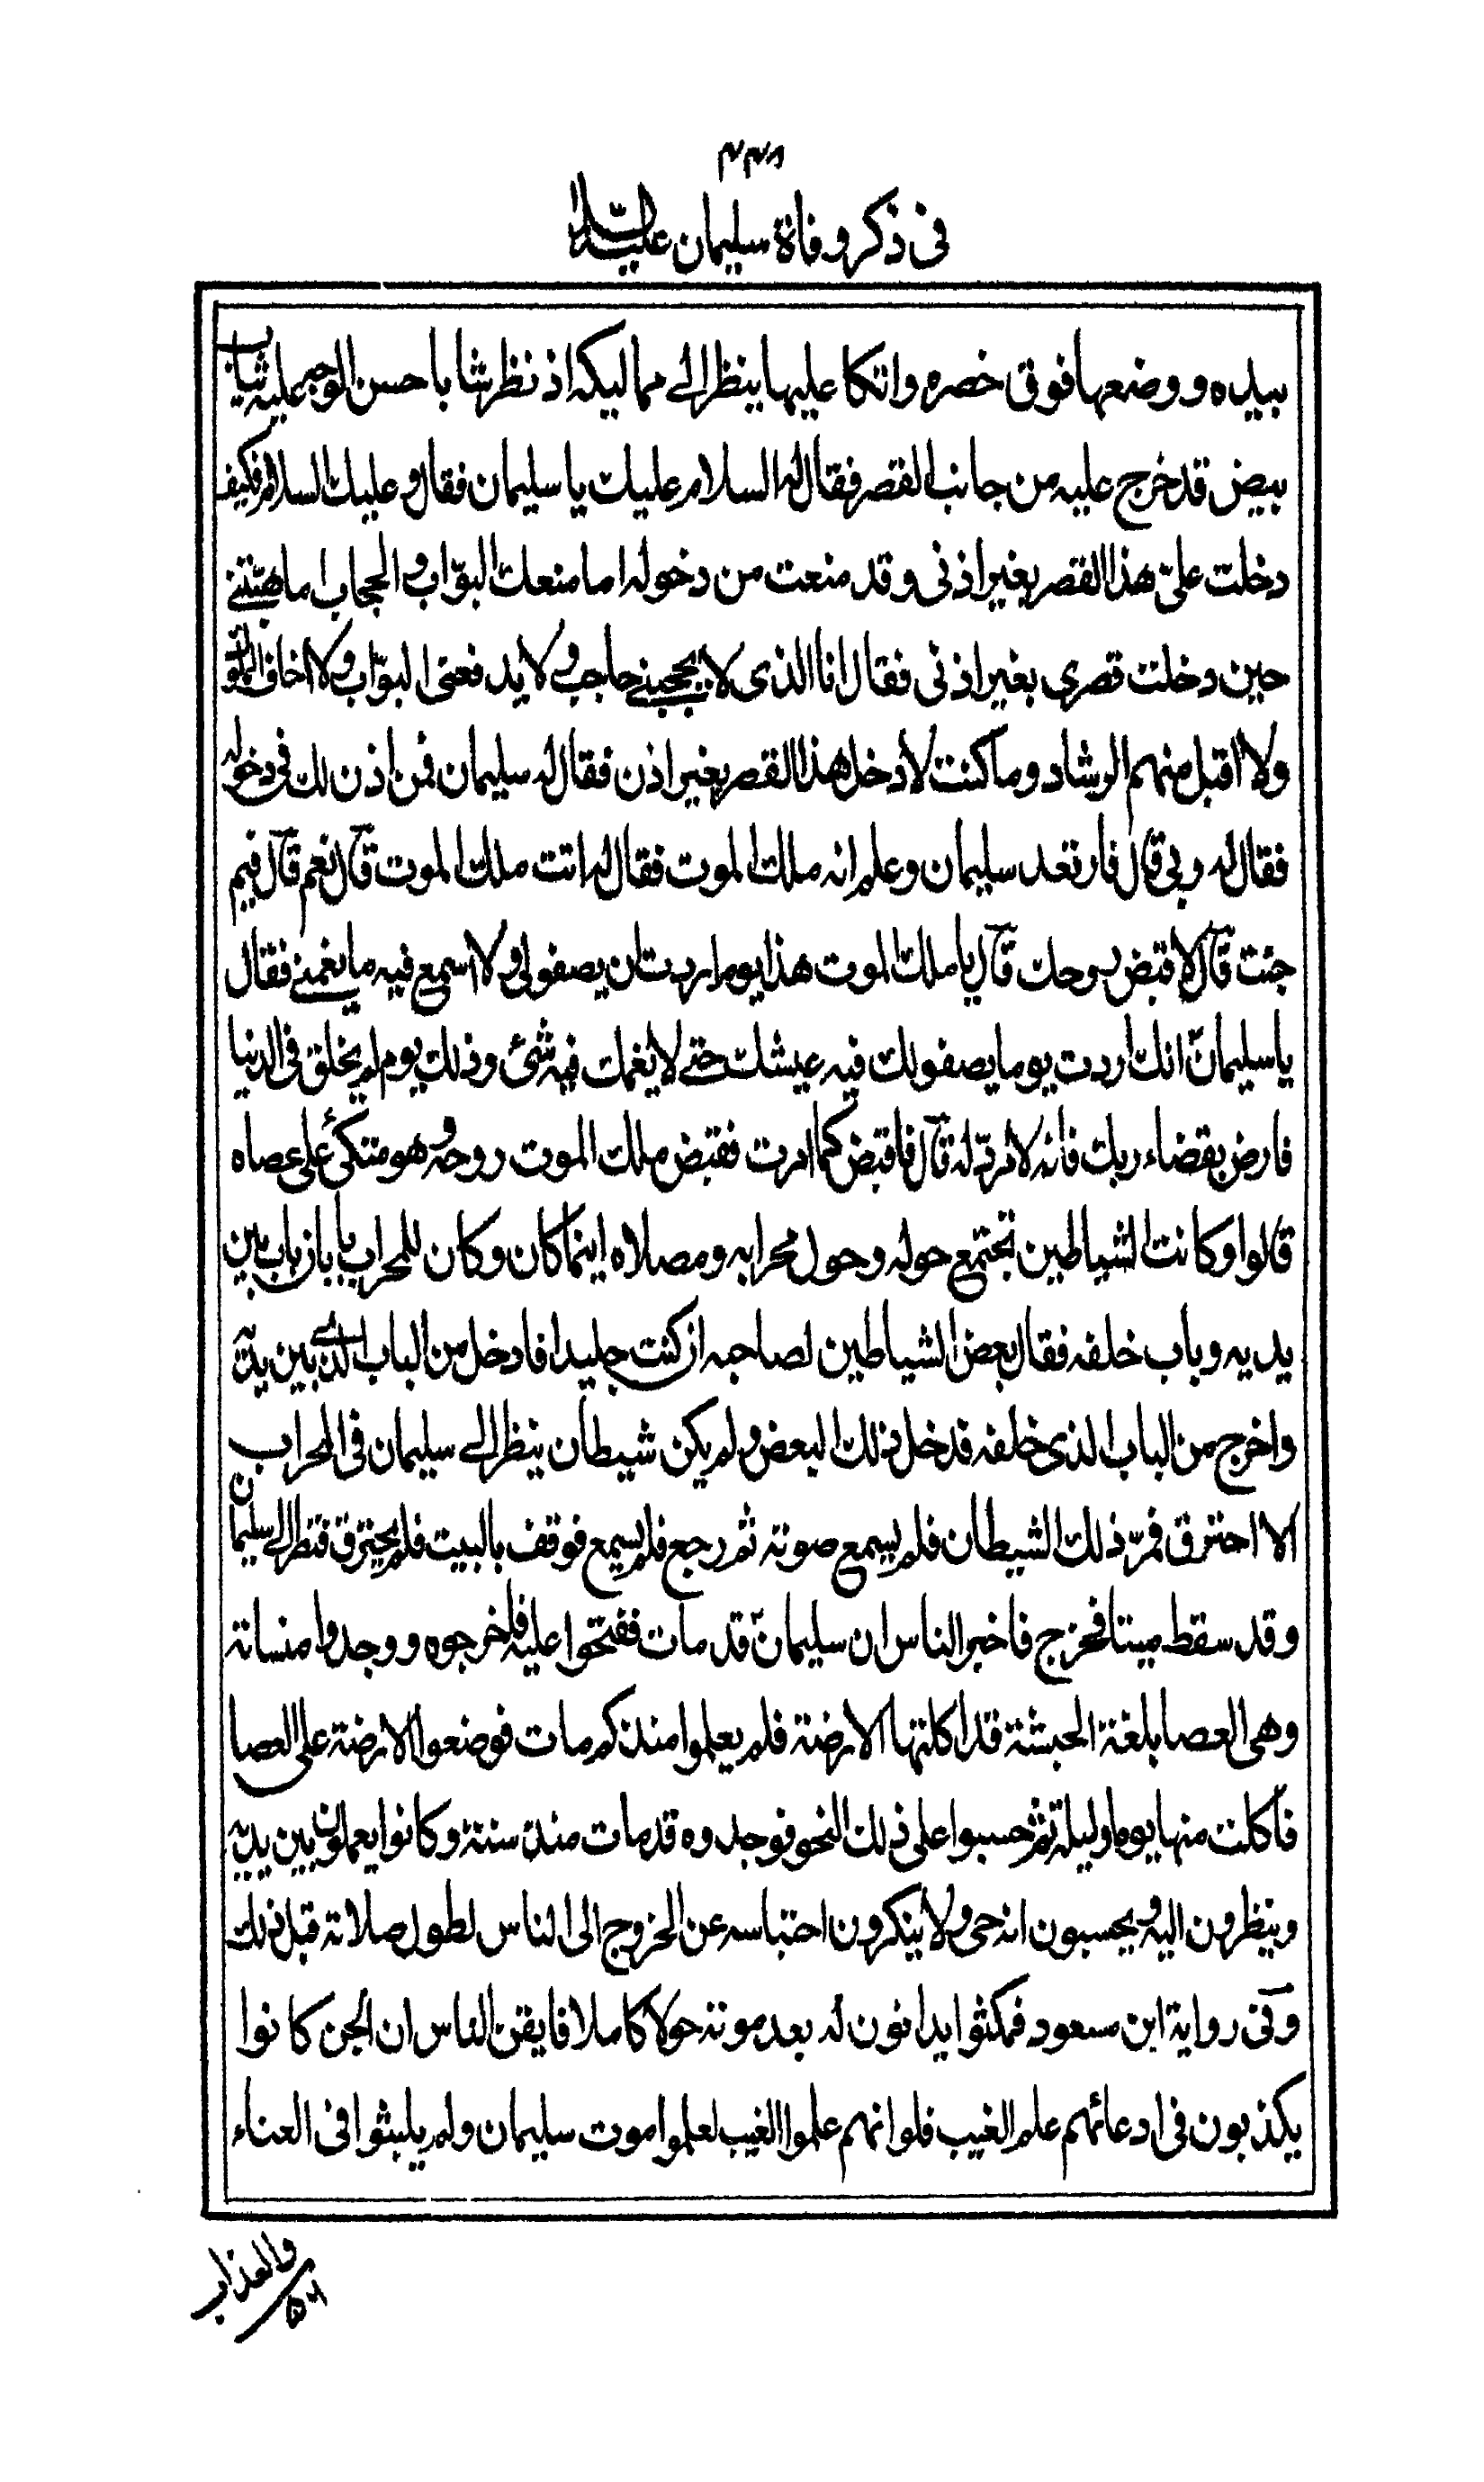 ٢٢٨
فى ذكر وفاة سليمان عليه السلام
بيده ووضعها فوق خصره واتكا عليها ينظر الى مماليكه اذ نظر شابا حسن الوجه عليه ثياب
بيض قد خرج عليه من جانب القصر فقال له السلام عليك يا سليمان فقال وعليك السلام فكيف
دخلت علىّ هذا القصر بغير اذنى وقد منعت من دخوله اما منعك البوّاب والحجاب اما هبتنى
حين دخلت قصرى بغير اذنى فقال انا الذى لا يحجبنى حاجب ولا يدفعنى البوّاب ولا اخاف الملوك
ولا اقبل منهم الرشاد وما كنت لادخل هذا القصر بغير اذن فقال له سليمان فمن اذن لك فى دخوله
فقال له ربى قال فارتعد سليمان وعلم انه ملك الموت فقال له انت ملك الموت قال نعم قال فيم
جئت قال لاقبض روحك قال يا ملك الموت هذا يوم اردت ان يصفو لى ولا اسمع فيه ما يغمنى فقال
يا سليمان انك اردت يوما يصفو لك فيه عيشك حتى لا يغمك فيه شئ وذلك يوم لم يخلق فى الدنيا
فارض بقضاء ربك فانه لا مردّ له قال فاقبض كما امرت فقبض ملك الموت روحه وهو متكئ على عصاه
قالوا وكانت الشياطين تجتمع حوله وحول محرابه ومصلاه اينما كان وكان للمحراب بابان باب بين
يديه وباب خلفه فقال بعض الشياطين لصاحبه ان كنت جليدا فادخل من الباب الذى بين يديه
واخرج من الباب الذى خلفه فدخل ذلك البعض ولم يكن شيطان ينظر الى سليمان فى المحراب
الا احترق فمرّ ذلك الشيطان فلم يسمع صوته ثم رجع فلم يسمع فوقف بالبيت فلم يحترق فنظر الى سليمان
وقد سقط ميتا فخرج فاخبر الناس ان سليمان قد مات ففتحوا عليه فاخرجوه ووجدوا منساته
وهى العصا بلغة الحبشة قد اكلتها الارضة فلم يعلموا منذ كم مات فوضعوا الارضة على العصا
فاكلت منها يوما وليلة ثم حسبوا على ذلك النحو فوجدوه قد مات منذ سنة وكانوا يعملون بين يديه
وينظرون اليه ويحسبون انه حى ولا ينكرون احتباسه عن الخروج الى الناس لطول صلاته قبل ذلك
وفى رواية ابن مسعود فمكثوا يدانون له بعد موته حولا كاملا فايقن الناس ان الجن كانوا
يكذبون فى ادعائهم علم الغيب فلو انهم علموا الغيب لعلموا موت سليمان ولم يلبثوا فى العناء
والعذاب